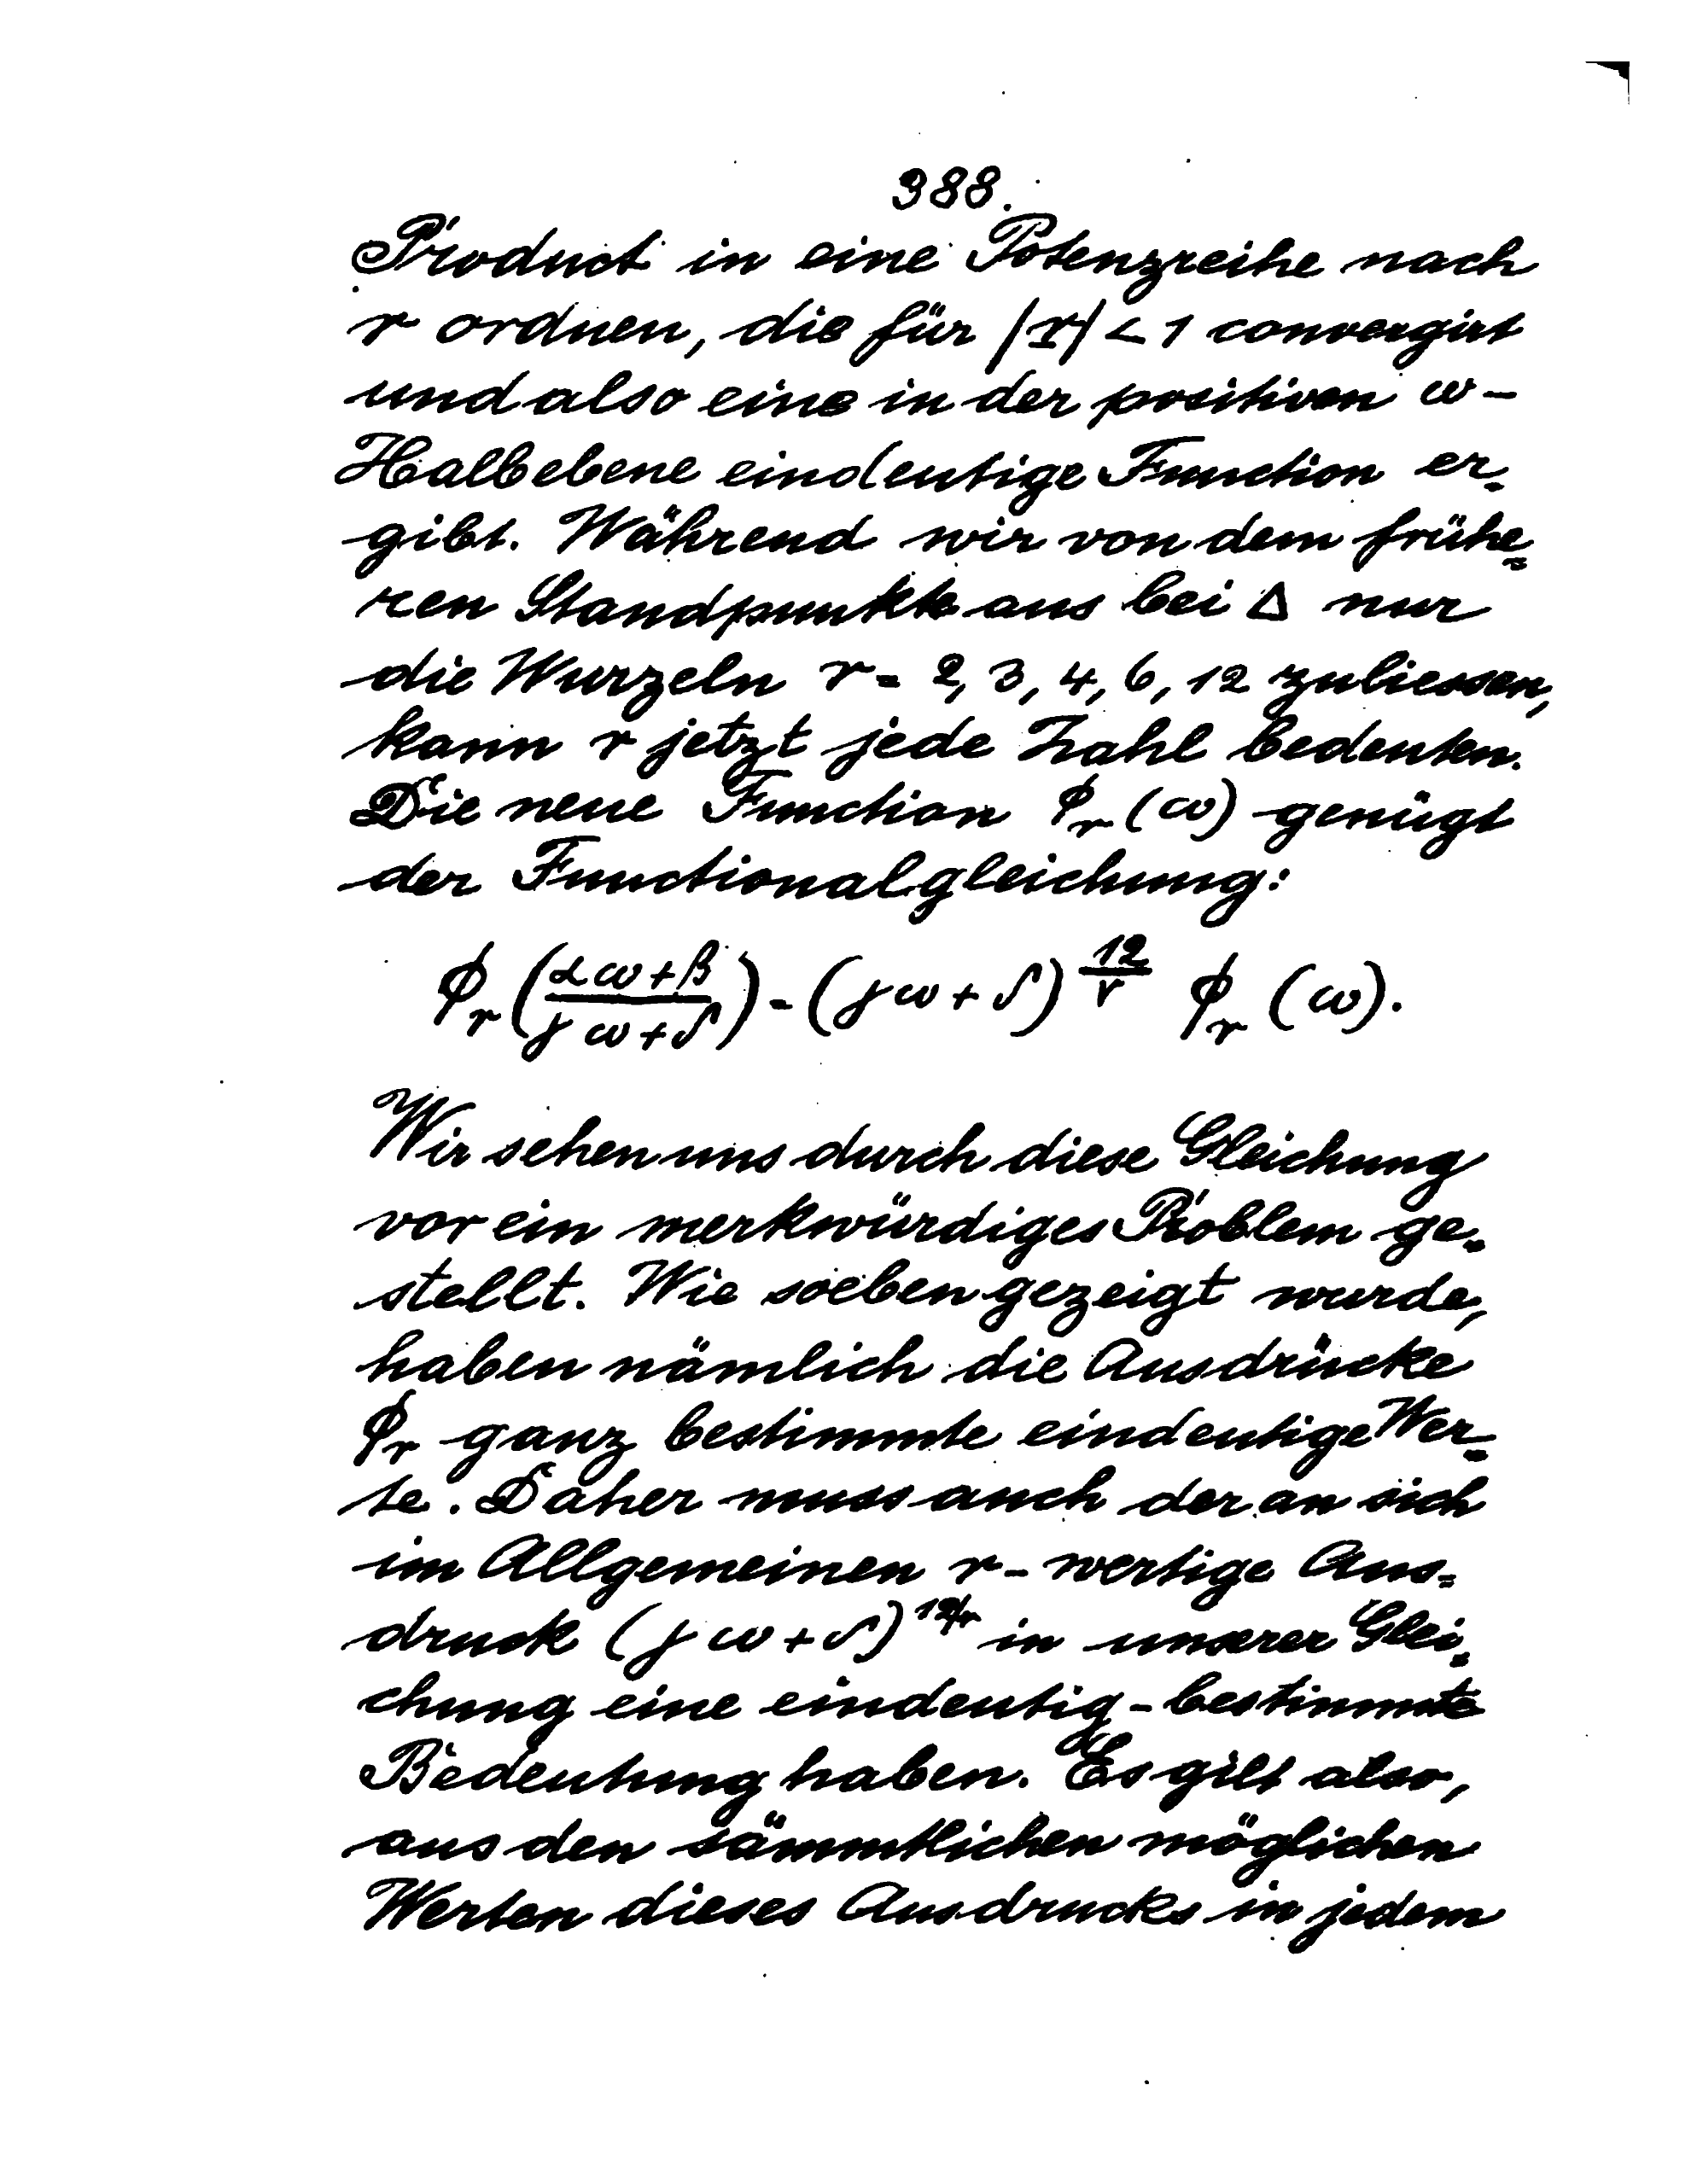 388.
Product in eine Potenzreihe nach
r ordnen, die für |r| < 1 convergirt
und also eine in der positiven ω-
Halbebene eindeutige Function er=
gibt. Während wir von dem frühe=
ren Standpunkte aus bei Δ nur
die Wurzeln r = 2, 3, 4, 6, 12 zuliessen,
kann r jetzt jede Zahl bedeuten.
Die neue Function ϕ_r (ω) genügt
der Functionalgleichung:
ϕ_r ((αω+β)/(γω+δ)) = (γω+δ)^(12/r) ϕ_r (ω).
Wir sehen uns durch diese Gleichung
vor ein merkwürdiges Problem ge=
stellt. Wie soeben gezeigt wurde,
haben nämlich die Ausdrücke
ϕ_r ganz bestimmte eindeutige Wer=
te. Daher muss auch der an sich
im Allgemeinen r-wertige Aus=
druck (γω+δ)^(12/r) in unserer Glei=
chung eine eindeutig-bestimmte
Bedeutung haben. Es gilt also,
aus den sämmtlichen möglichen
Werten dieses Ausdrucks in jedem